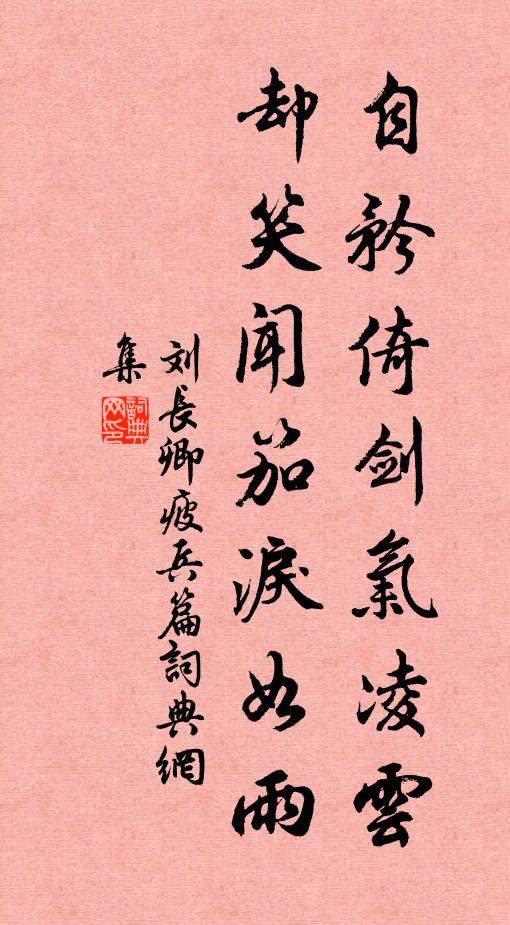 自矜倚劍氣凌雲
却笑聞笳淚如雨
刘長卿疲兵篇詞典網
集
詞典網印